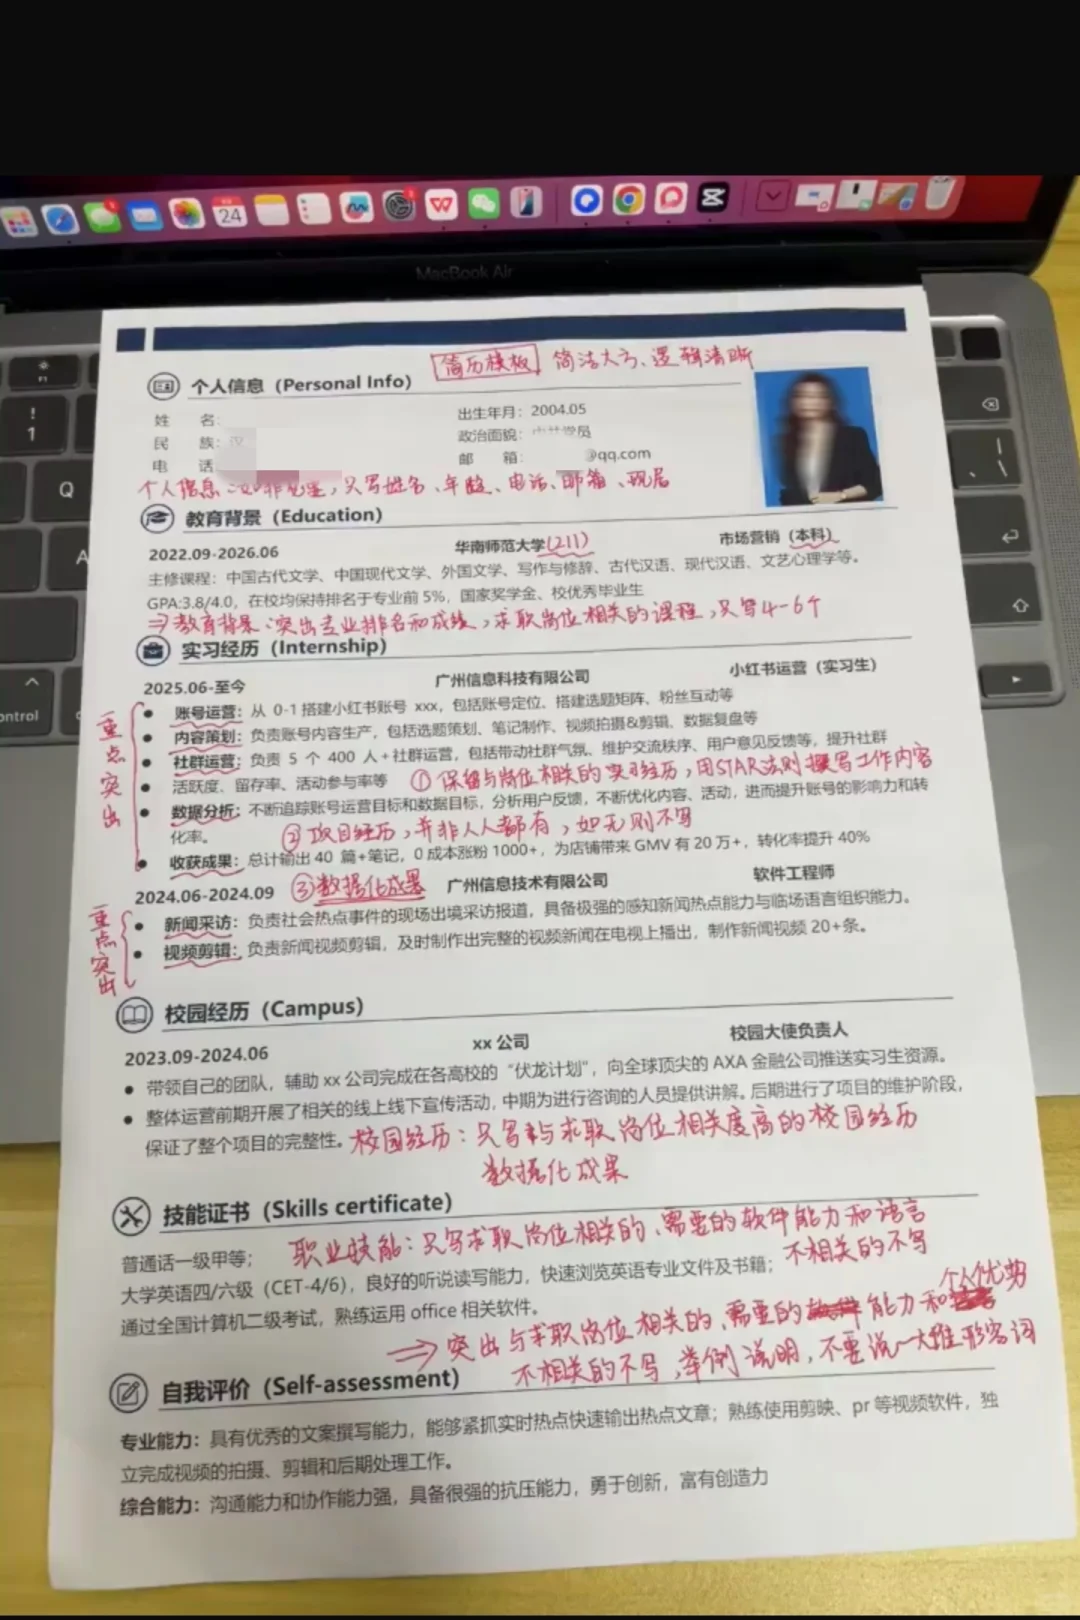 24
MacBook Air
Q
A
control
简历模板 简洁大方、逻辑清晰
个人信息（Personal Info）
姓 名：
出生年月：2004.05
民 族：汉
政治面貌：中共党员
电 话：
邮 箱： @qq.com
个人信息：如非党员，只写姓名、年龄、电话、邮箱、现居
教育背景（Education）
2022.09-2026.06 华南师范大学(211) 市场营销（本科）
主修课程：中国古代文学、中国现代文学、外国文学、写作与修辞、古代汉语、现代汉语、文艺心理学等。
GPA:3.8/4.0，在校均保持排名于专业前 5%，国家奖学金、校优秀毕业生
⇒教育背景：突出专业排名和成绩，求职岗位相关的课程，只写4-6个
实习经历（Internship）
2025.06-至今 广州信息科技有限公司 小红书运营（实习生）
重点突出
账号运营：从 0-1 搭建小红书账号 xxx，包括账号定位、搭建选题矩阵、粉丝互动等
内容策划：负责账号内容生产，包括选题策划、笔记制作、视频拍摄&剪辑、数据复盘等
社群运营：负责 5 个 400 人+社群运营，包括带动社群气氛、维护交流秩序、用户意见反馈等，提升社群
活跃度、留存率、活动参与率等
①保留与岗位相关的实习经历，用STAR法则撰写工作内容
数据分析：不断追踪账号运营目标和数据目标，分析用户反馈，不断优化内容、活动，进而提升账号的影响力和转
化率。
②项目经历，并非人人都有，如无则不写
收获成果：总计输出 40 篇+笔记，0 成本涨粉 1000+，为店铺带来 GMV 有 20 万+，转化率提升 40%
2024.06-2024.09 ③数据化成果 广州信息技术有限公司 软件工程师
重点突出
新闻采访：负责社会热点事件的现场出境采访报道，具备极强的感知新闻热点能力与临场语言组织能力。
视频剪辑：负责新闻视频剪辑，及时制作出完整的视频新闻在电视上播出，制作新闻视频 20+条。
校园经历（Campus）
2023.09-2024.06 xx 公司 校园大使负责人
带领自己的团队，辅助 xx 公司完成在各高校的“伏龙计划”，向全球顶尖的 AXA 金融公司推送实习生资源。
整体运营前期开展了相关的线上线下宣传活动，中期为进行咨询的人员提供讲解。后期进行了项目的维护阶段，
保证了整个项目的完整性。
校园经历：只写与求职岗位相关度高的校园经历
数据化成果
技能证书（Skills certificate）
普通话一级甲等；
职业技能：只写求职岗位相关的、需要的软件能力和语言
不相关的不写
大学英语四/六级（CET-4/6），良好的听说读写能力，快速浏览英语专业文件及书籍；
通过全国计算机二级考试，熟练运用 office 相关软件。
⇒突出与求职岗位相关的、需要的能力和个人优势
不相关的不写，举例说明，不要说一大堆形容词
自我评价（Self-assessment）
专业能力：具有优秀的文案撰写能力，能够紧抓实时热点快速输出热点文章；熟练使用剪映、pr 等视频软件，独
立完成视频的拍摄、剪辑和后期处理工作。
综合能力：沟通能力和协作能力强，具备很强的抗压能力，勇于创新，富有创造力